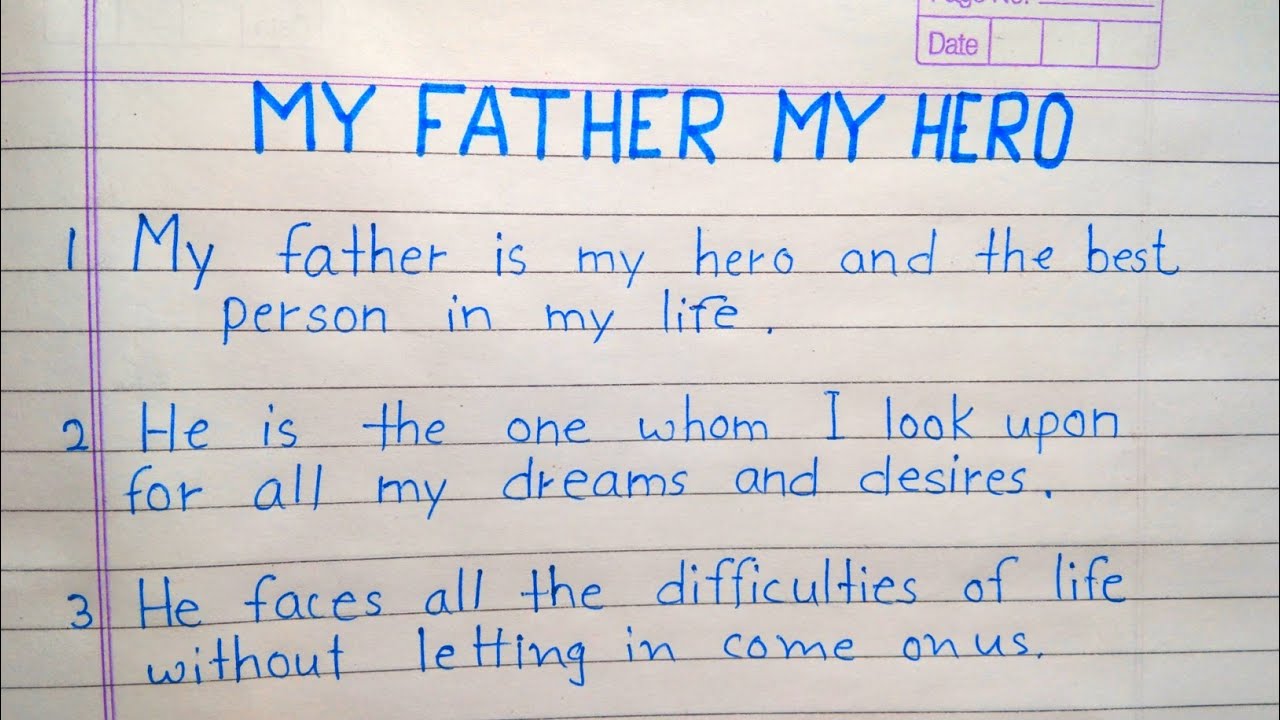 Page No.
Date
MY FATHER MY HERO
1 My father is my hero and the best
person in my life.
2 He is the one whom I look upon
for all my dreams and desires.
3 He faces all the difficulties of life
without letting in come on us.